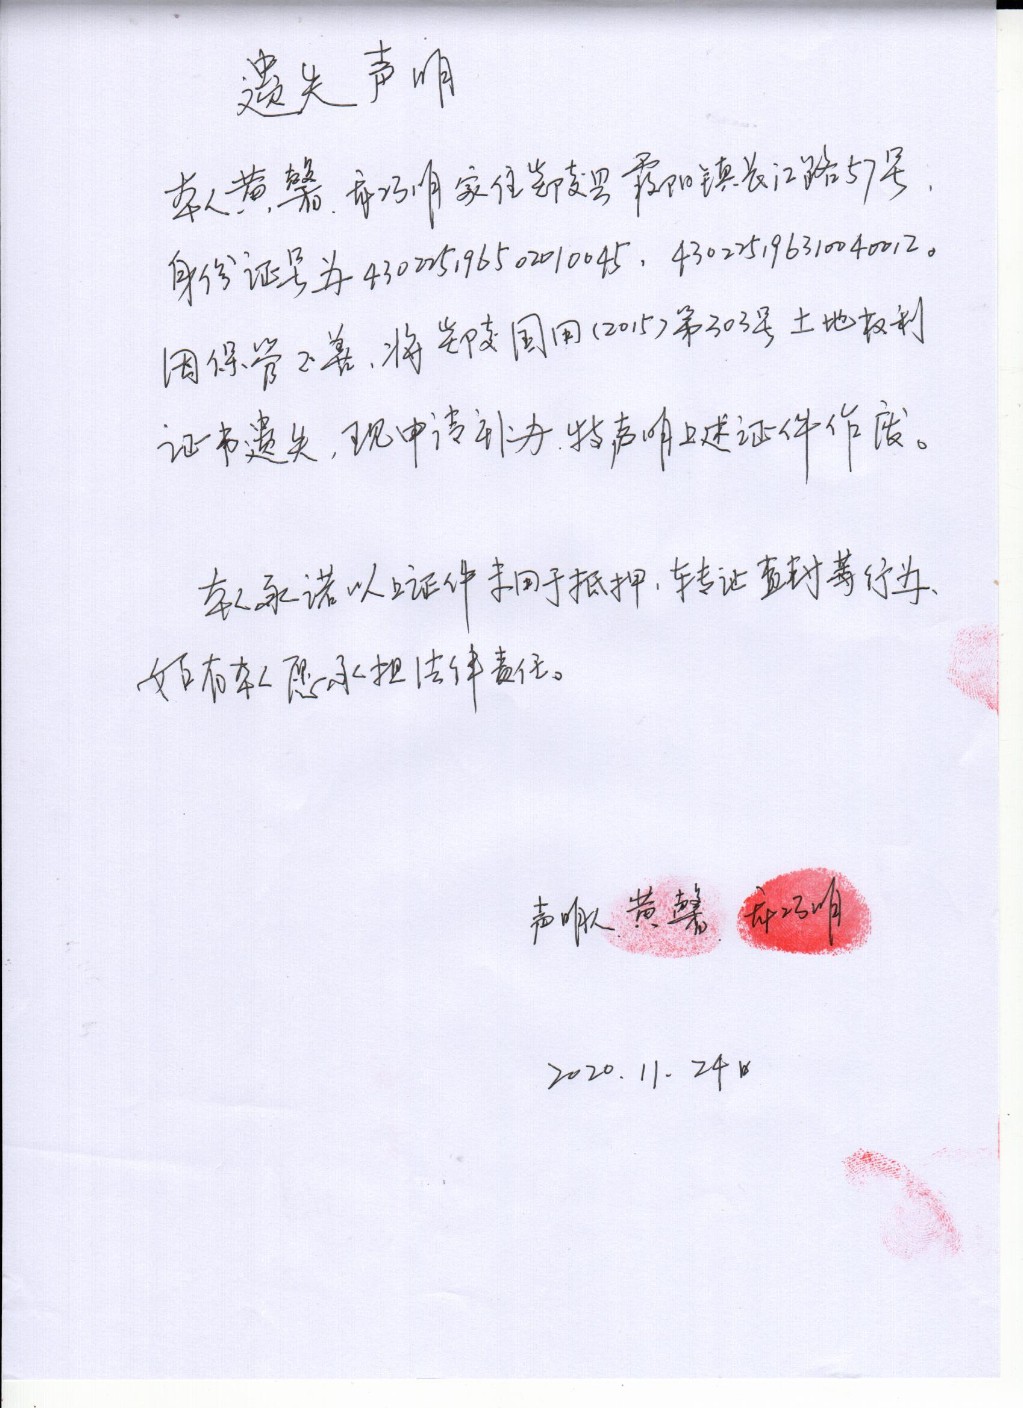 遗失声明
本人黄馨、冯明家住炎陵县霞阳镇长江路57号,
身份证号为430225196502010045、430225196310040012。
因保管不善,将炎陵国用(2015)第303号土地权利
证书遗失,现申请补办,特声明上述证件作废。
本人承诺以上证件未用于抵押、转让查封等行为、
如有本人愿承担法律责任。
声明人 黄馨 冯明
2020.11.24日